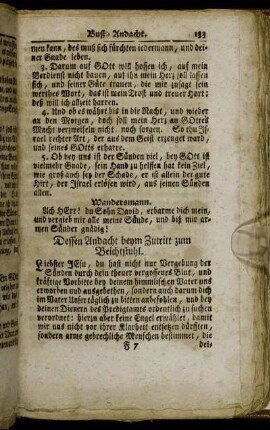 Buß-Andacht. 133
men kann, des muß sich fürchten iedermann, und dei-
ner Gnade leben.
3. Darum auf GOtt will hoffen ich, auf mein
Verdienst nicht bauen, auf ihn mein Herz soll lassen
sich, und seiner Güte trauen, die mir zusagt sein
werthes Wort, das ist mein Trost und treuer Hort;
deß will ich allzeit harren.
4. Und ob es währt bis in die Nacht, und wieder
an den Morgen, doch soll mein Herz an GOttes
Macht verzweifeln nicht noch sorgen. So thu Is-
rael rechter Art, der aus dem Geist erzeuget ward,
und seines GOtts erharre.
5. Ob bey uns ist der Sünden viel, bey GOtt ist
vielmehr Gnade, sein Hand zu helfen hat kein Ziel,
wie groß auch sey der Schade, er ist allein der gute
Hirt, der Israel erlösen wird, aus seinen Sünden
allen.
Wandersmann.
Ach HErr! du Sohn David, erbarme dich mein,
und vergieb mir alle meine Sünde, und biß mir ar-
men Sünder gnädig!
Dessen Andacht beym Zutritt zum
Beichtstuhl.
Liebster JEsu, du hast nicht nur Vergebung der
Sünden durch dein theuer vergossenes Blut, und
kräftige Vorbitte bey deinem himmlischen Vater uns
erworben und ausgebethen, sondern auch darum dich
im Vater Unser täglich zu bitten anbefohlen, und bey
deinen Dienern des Predigtamts ordentlich zu suchen
verordnet: hierzu aber keine Engel erwählet, damit
wir uns nicht vor ihrer Klarheit entsetzen dürften,
sondern arme gebrechliche Menschen bestimmet, die
F 7 dei-